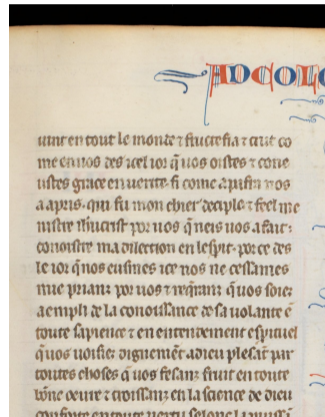 AD COLO
uint en tout le monde ⁊ fructefia ⁊ croit co
me en uos des icel ior q̃ uos oistes ⁊ cone
ustes grace en uerite. si come apristes uos
a apris. qui fu mon chier deciple ⁊ feel me
nistre ihucrist por uos q̃ neis uos a fait
conoistre ma dilection en lespit. por ce des
le ior q̃ nos eusmes ice nos ne cessames
mie priant por uos ⁊ reqrant q̃ uos soiez
aempli de la conoissance de sa uolante ẽ
toute sapience ⁊ en entendement espirituel
q̃ uos uoisiez dignemẽt adieu plesãt par
toutes choses q̃ uos fesanz fruit en toute
bõne oeuure ⁊ croissanz en la science de dieu
confortez en toute uertu selonc la